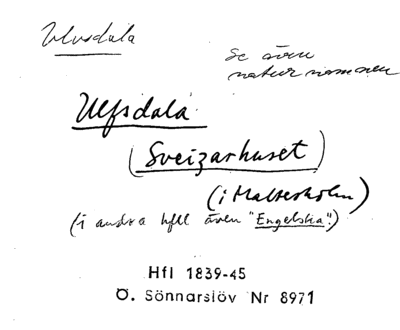 Ulvsdala
Se även
naturnamnen
Ulfsdala
(Sveizarhuset)
(i Maltesholm)
(i andra hfll även "Engelska".)
Hfl 1839-45
Ö. Sönnarslöv Nr 8971